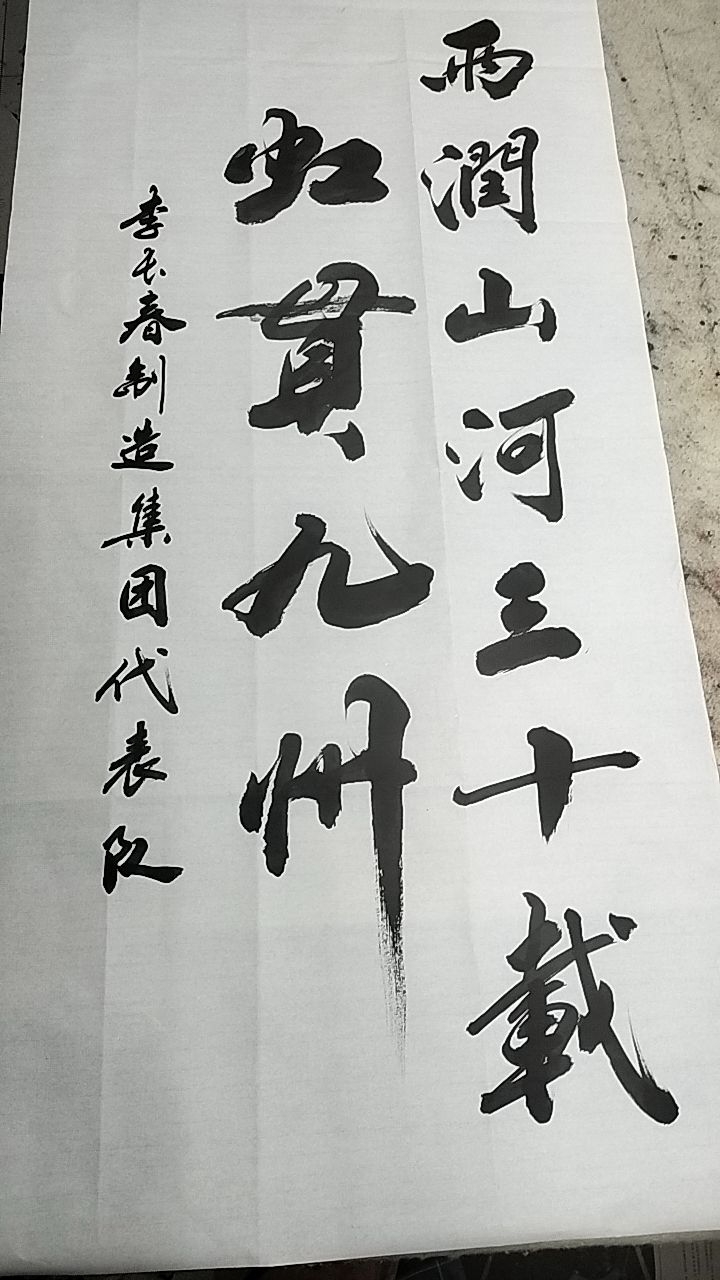 雨潤山河三十載
虹貫九州
李长春制造集团代表队